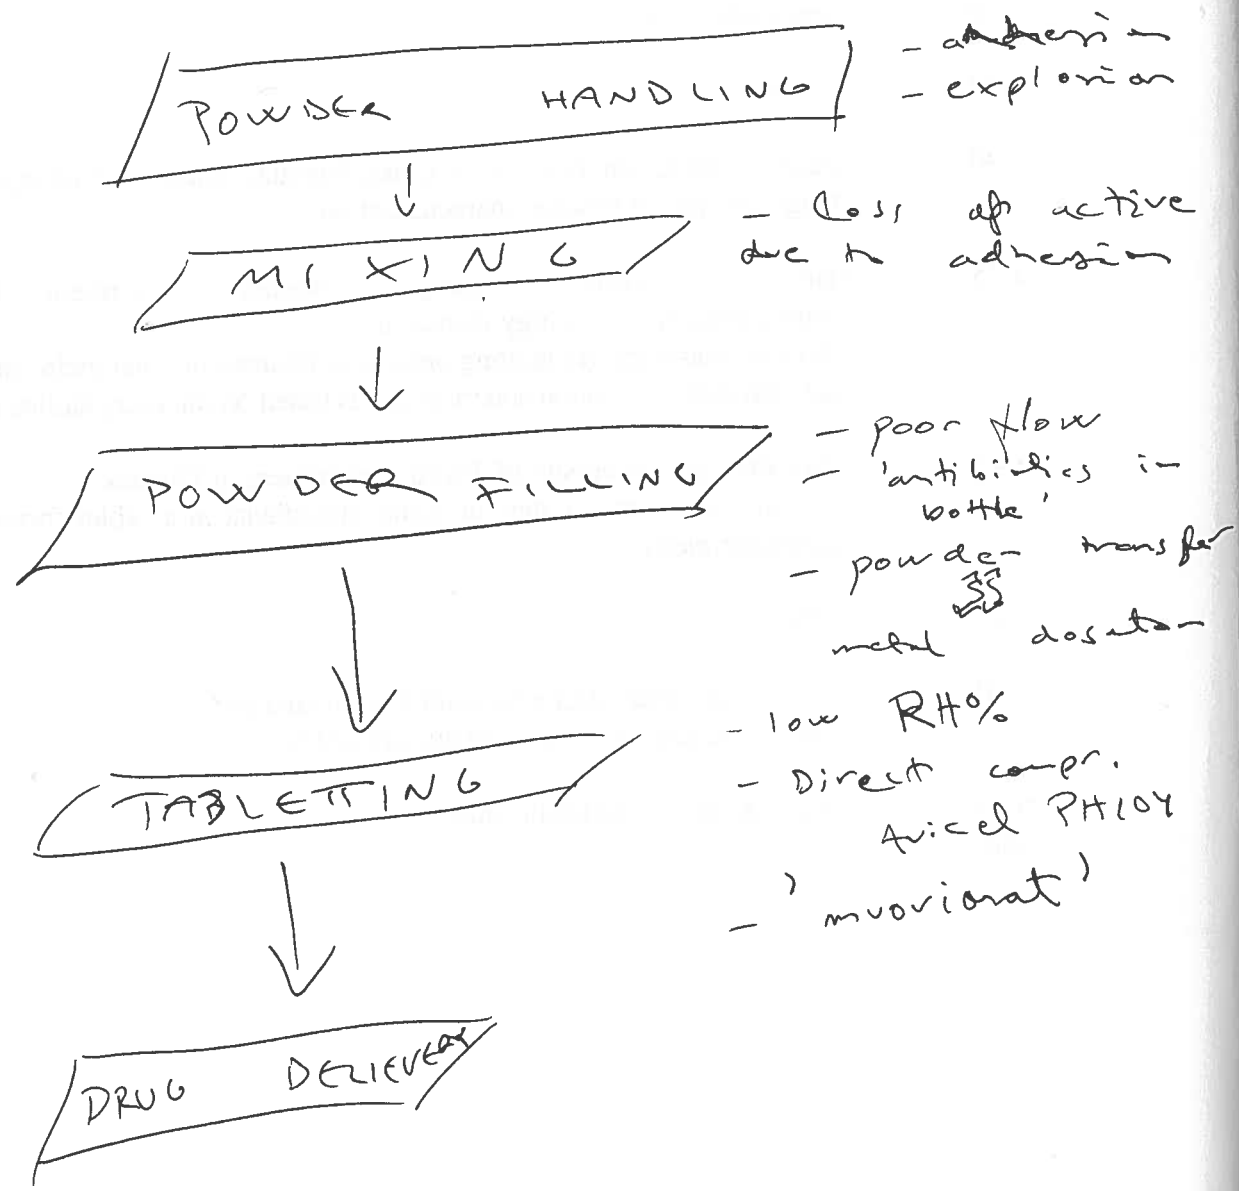 POWDER HANDLING
- adhesion
- explosion
MIXING
- Loss of active
due to adhesion
POWDER FILLING
- poor flow
- 'antibiotics in
bottle'
- powder transfer
metal dosator
TABLETTING
- low RH%
- Direct compr.
Avicel PH104
- 'muoviosat'
DRUG DELIEVERY